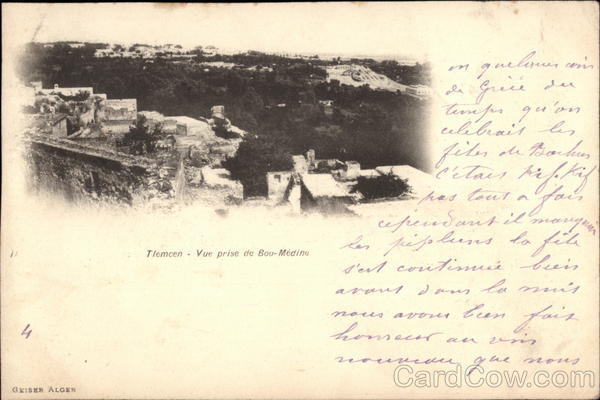 on quelques coins
de Grèce du
temps qu'on
celebrait les
fêtes de Bachus
c'étais Kif-Kif
pas tout a fais
cependant il manquait
les péplums la fête
s'est continuée bien
avant dans la nuit
nous avons bien fait
honneur au vin
nouveau que nous
Tlemcen - Vue prise de Bou-Médine
4
GEISER ALGER
CardCow.com